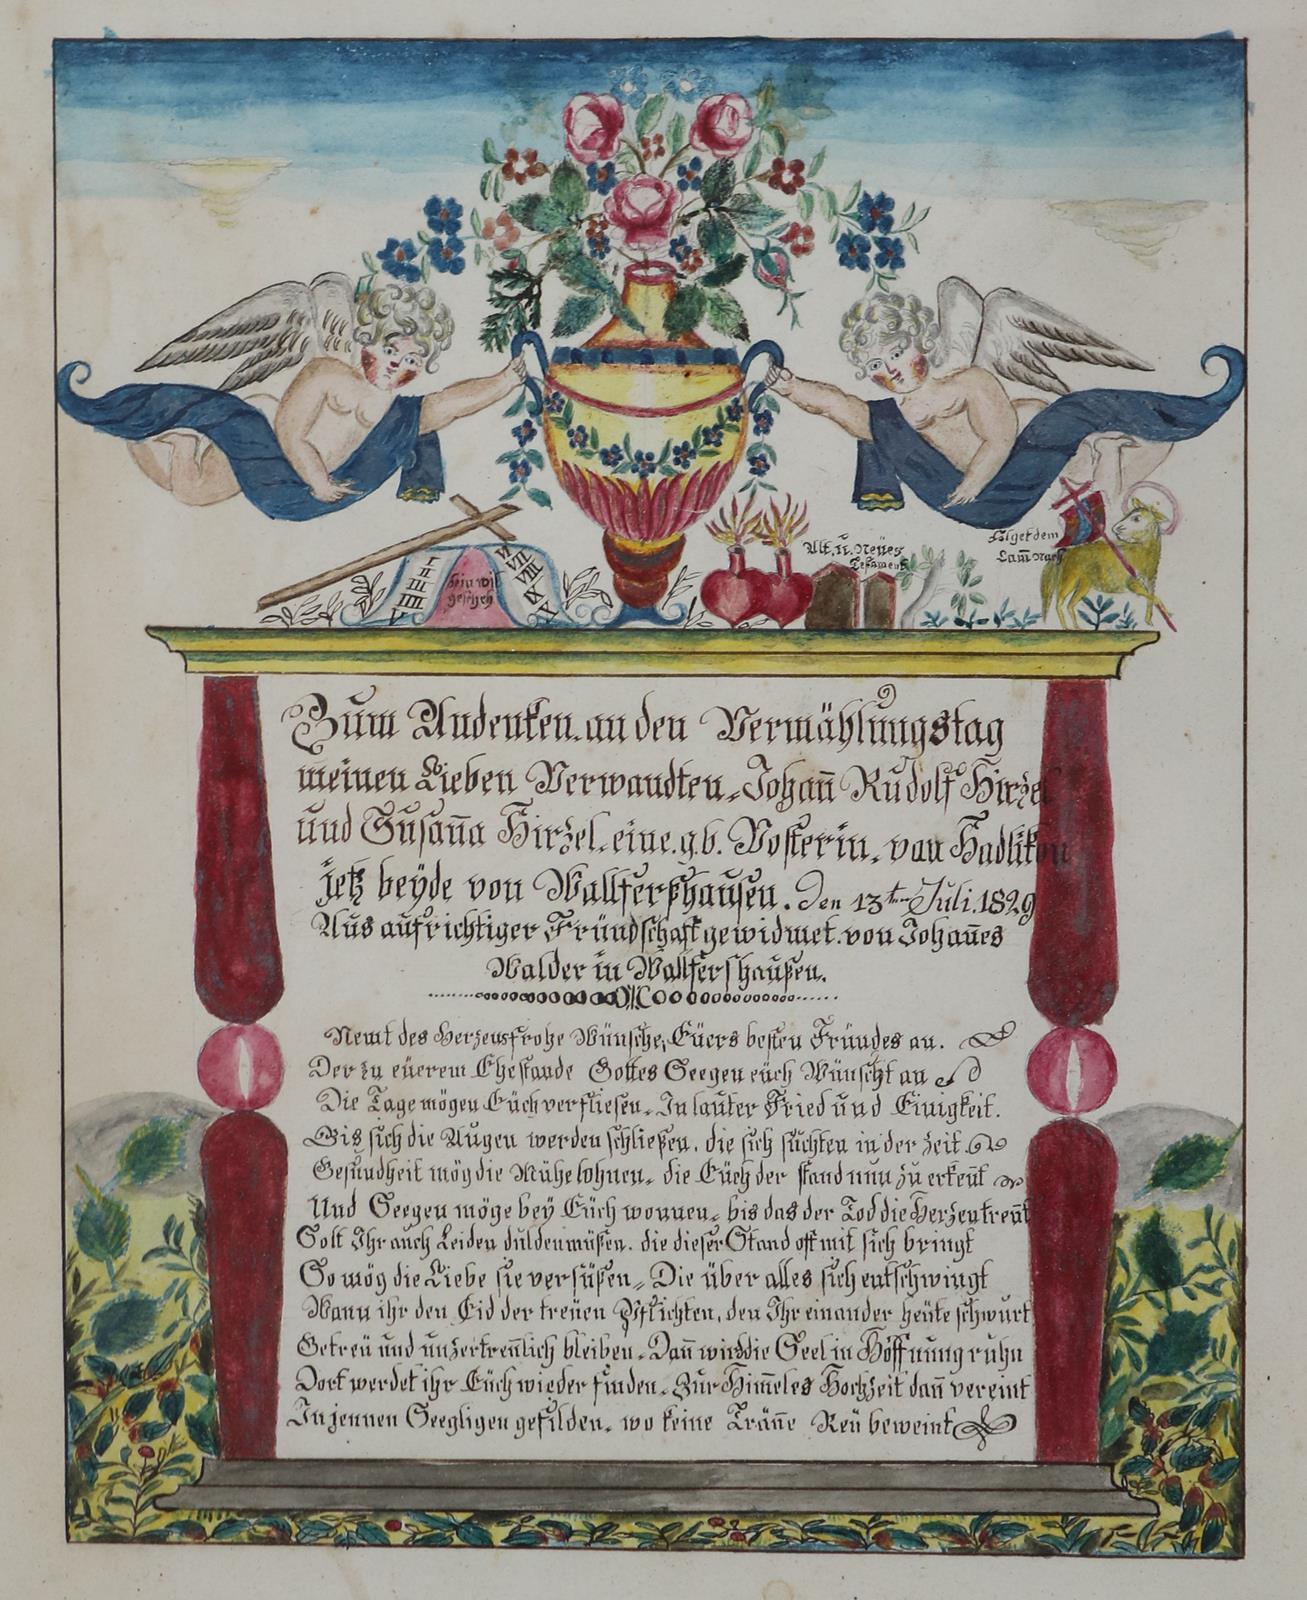 Folget dem
Lam̄ nach
Alt. ü. Neües
Testament
I
II
III
IIII
V
dein wil
geschech
VI
VII
VIII
IX
X
Zum Andenken. an den Vermählüngstag
meinen Lieben Verwandten, Johan̄ Rüdolf Hirzel
ünd Süsan̄a Hirzel. eine. g.b. Vosterin. van Hadlikon
jetz beÿde von Wallferßhaüsen. Den 13ten Juli. 1829
Aüs aüfrichtiger Fründschaft gewidmet. von Johan̄es
Walder in Wallfershaüßen.
Nemt des Herzens frohe Wünsche, Eüers besten Fründes an.
Der zu eüerem Ehestande Gottes Seegen eüch Wünscht an
Die Tage mögen Eüch verfliesen. In laüter Fried ünd Einigkeit.
Bis sich die Aügen werden schließen. die sich süchten in der Zeit
Gesündheit mög die Mühe lohnen. die Eüch der stand nun zü erken̄t
Und Seegen möge beÿ Eüch wonnen. bis das der Tod die Herzen tren̄t
Solt Ihr auch Leiden düldenmüßen. die dieser Stand oft mit sich bringt
So mög die Liebe sie versüßen, Die über alles sich entschwingt
Wann ihr den Eid der treüen Pflichten, den Ihr einander heüte schwürt
Getreü und ünzertren̄lich bleiben. Dan̄ wird die Seel in Hoffnung rühn
Dort werdet ihr Eüch wieder finden. Zür Him̄els Hochzeit dan̄ vereint
In jennen Seegligen gefilden. wo keine Trän̄e Reü beweint